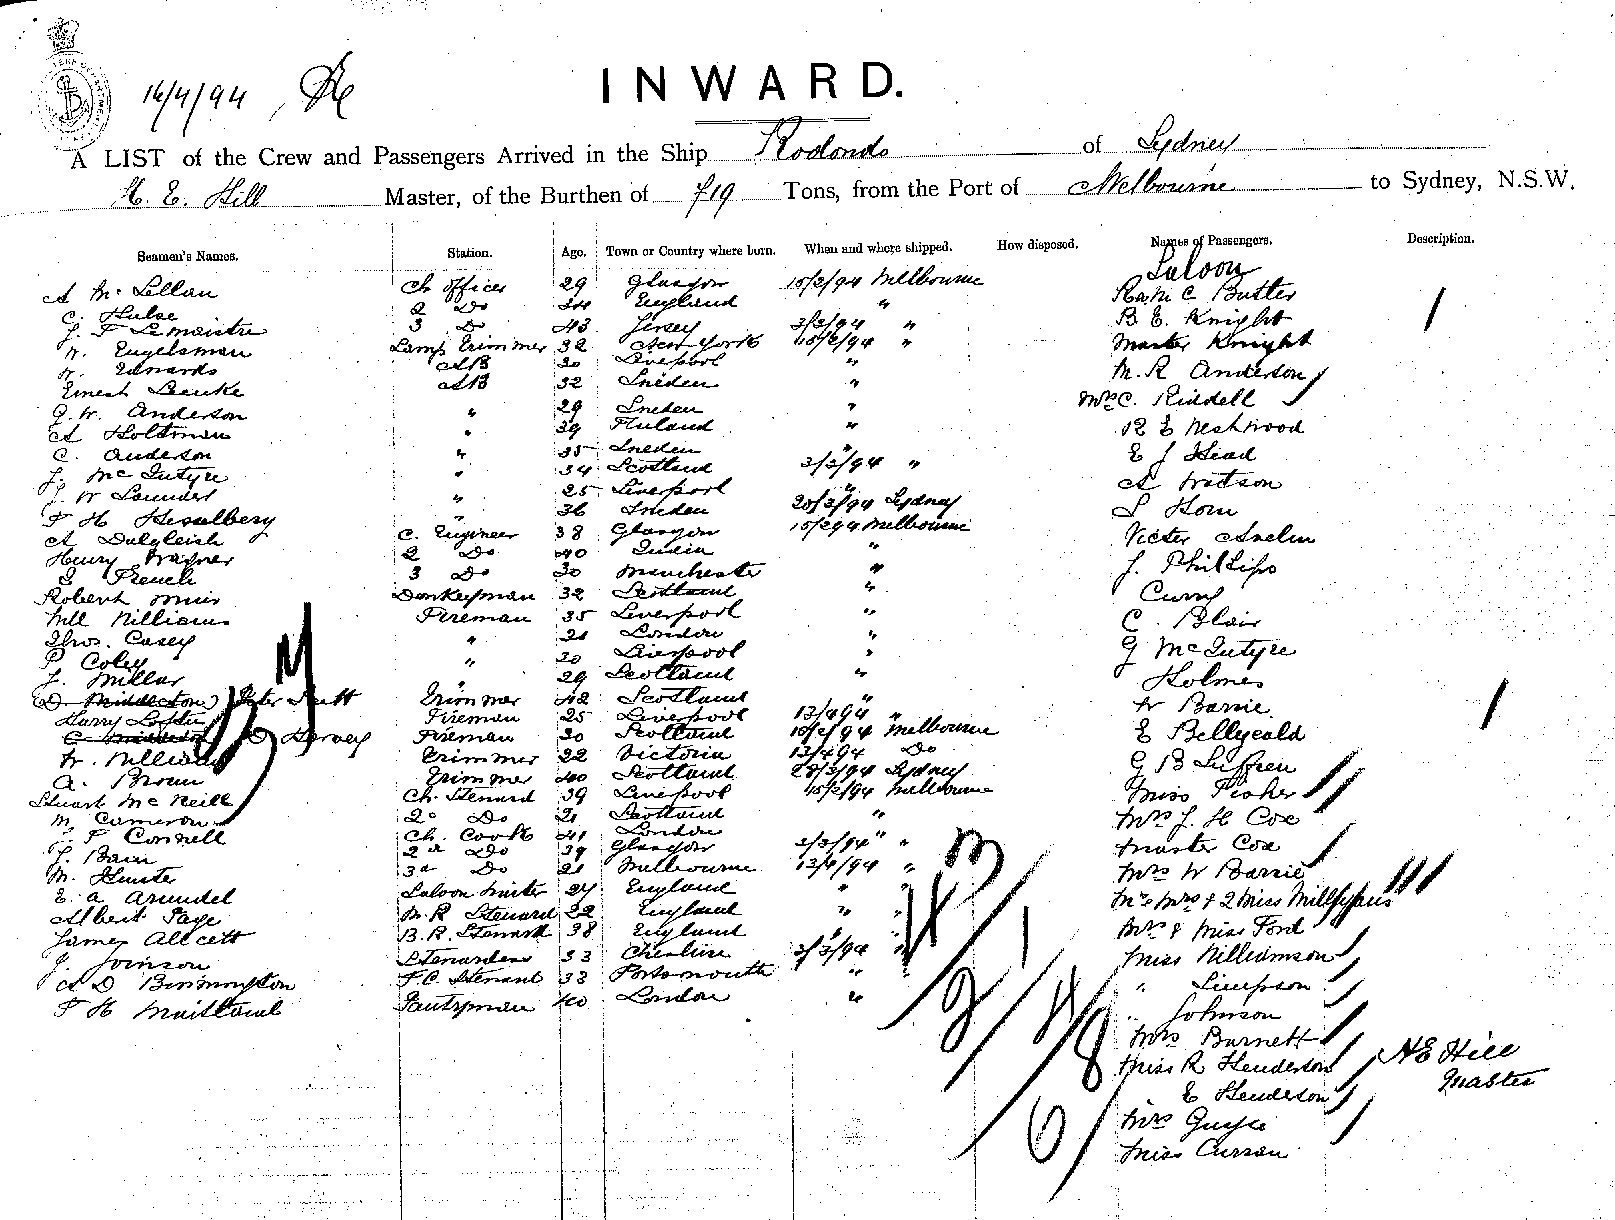 16/4/94
INWARD.
A LIST of the Crew and Passengers Arrived in the Ship Rodondo of Sydney
H. E. Hill Master, of the Burthen of 719 Tons, from the Port of Melbourne to Sydney, N.S.W.
Seamen's Names. Station. Age. Town or Country where born. When and where shipped. How disposed. Names of Passengers. Description.
Saloon
A McLellan Ch Officer 29 Glasgow 15/2/94 Melbourne
C. Hulse 2 Do 34 England "
J. F Lemaistre 3 Do 43 Jersey 3/3/94 "
W. Engelsman Lamp Trimmer 32 New York 15/2/94 "
W. Edwards AB 30 Liverpool "
Ernest AB 32 Sweden "
G. W. Anderson " 29 Sweden "
A Holtman " 39 Finland "
C. Anderson " 35 Sweden "
J. McIntyre " 34 Scotland 3/3/94 "
J. W Saunder " 25 Liverpool "
F H Hesselberg " 36 Sweden 20/3/94 Sydney
A Dalgleish C. Engineer 38 Glasgow 15/2/94 Melbourne
Henry Wagner 2 Do 40 India "
G French 3 Do 30 Manchester "
Robert Muir Donkeyman 32 Scotland "
Will Williams Fireman 35 Liverpool "
Thos. Casey " 21 London "
P Coley " 30 Liverpool "
J. Millar " 29 Scotland "
D. Middleton Peter Scott Trimmer 42 Scotland "
Harry Fireman 25 Liverpool 13/4/94 "
C Harvey Fireman 30 Scotland 15/2/94 Melbourne
W. Trimmer 22 Victoria 13/4/94 Do
A. Brown Trimmer 40 Scotland 28/3/94 Sydney
Stuart McNeill Ch. Steward 39 Liverpool 15/2/94 Melbourne
M. Cameron 2 Do 21 Scotland "
F Connell Ch. Cook 41 London "
J. Bain 2nd Do 39 Glasgow 3/3/94
M. Hunter 3rd Do 21 Melbourne 13/4/94 "
E. A Arundel Saloon Waiter 27 England "
Albert Page M.R Steward 22 England "
James Allcett B.R. Steward 38 England "
J. Joinson Stewardess 33 Cheshire 3/3/94 "
A D Binnington F.C. Steward 33 Portsmouth "
F H Maitland Pantryman 40 London "
C Butler
B. E. Knight
Master Knight
M. R Anderson
Mrs C. Riddell
R E Westwood
E J Head
A Watson
S Horn
Victor
J. Phillips
Curry
C. Blair
G McIntyre
Holmes
W Barrie
E
G B
Miss Fisher
Mrs J. H Cox
Master Cox
Mrs W Barrie
Mr Mrs & 2 Miss
Mrs & Miss Ford
Miss Williamson
" Simpson
" Johnson
Mrs Barnett
Miss R Henderson
E Henderson
Mrs
Miss Curran
H E Hill
Master